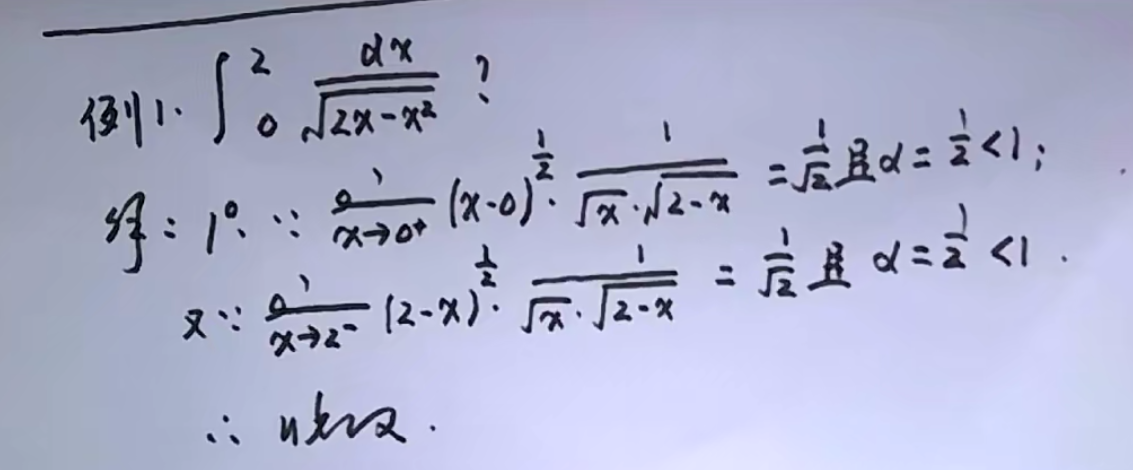 例1. ∫₀² dx/√(2x-x²) ?
解: 1°. ∵ lim x→0⁺ (x-0)^(1/2) · 1/(√x·√(2-x)) = 1/√2 且 α = 1/2 < 1;
又∵ lim x→2⁻ (2-x)^(1/2) · 1/(√x·√(2-x)) = 1/√2 且 α = 1/2 < 1.
∴ 收敛.